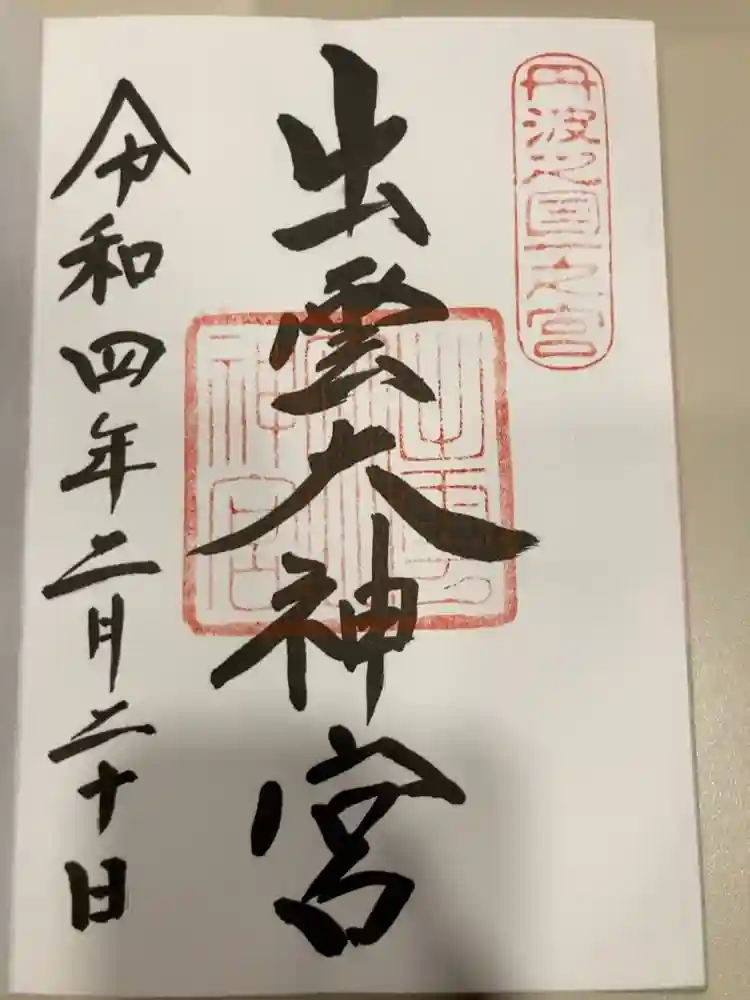 丹波之國一之宮
出雲大神宮
出雲大神宮
令和四年二月二十日